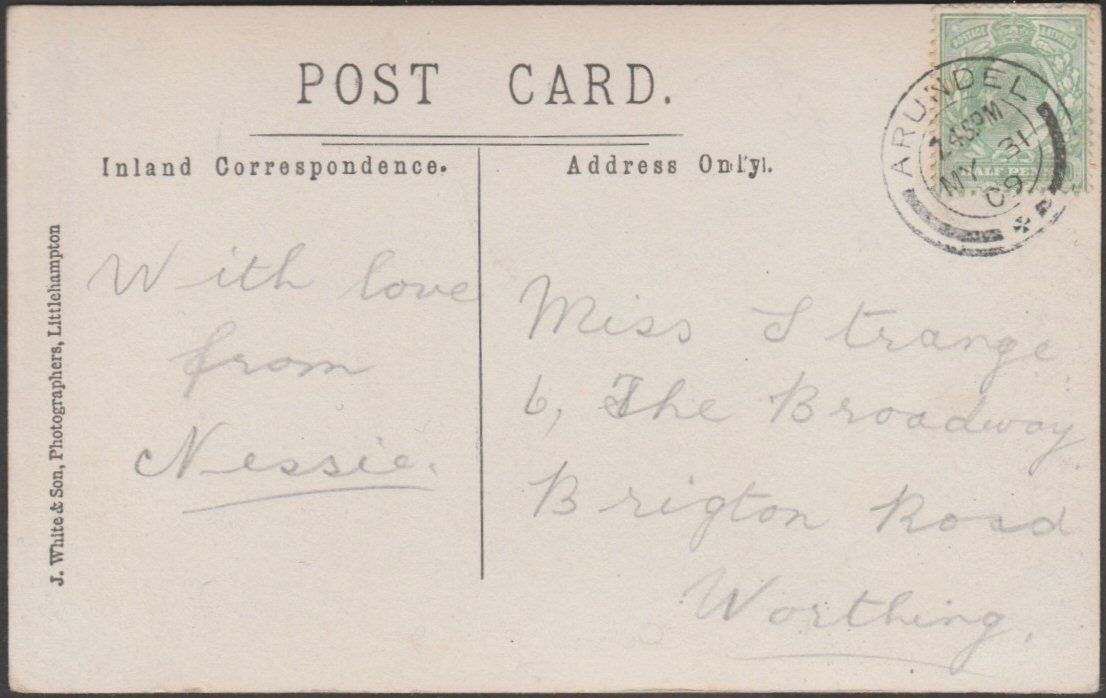 POST CARD.
Inland Correspondence.
Address Only.
J. White & Son, Photographers, Littlehampton
With love
from
Nessie.
Miss Strange
6, The Broadway
Brigton Road
Worthing.
POSTAGE & REVENUE
HALF PENNY
ARUNDEL
2.45PM
MY 31
09